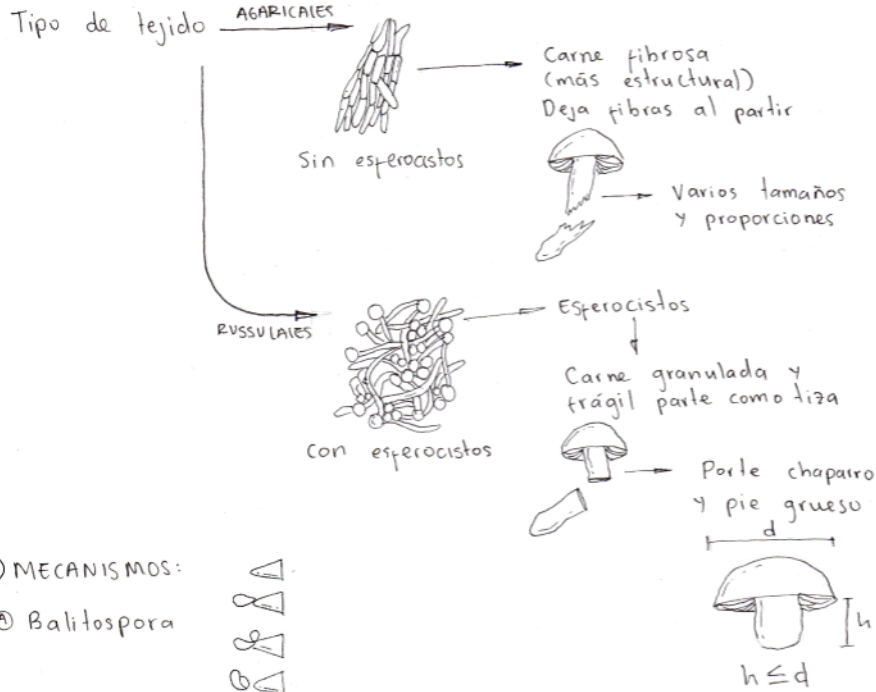 Tipo de tejido
AGARICALES
Sin esferocistos
Carne fibrosa
(más estructural)
Deja fibras al partir
Varios tamaños
y proporciones
RUSSULALES
Con esferocistos
Esferocistos
Carne granulada y
frágil parte como tiza
Porte chaparro
y pie grueso
d
h
h ≤ d
MECANISMOS:
Ⓐ Balitospora